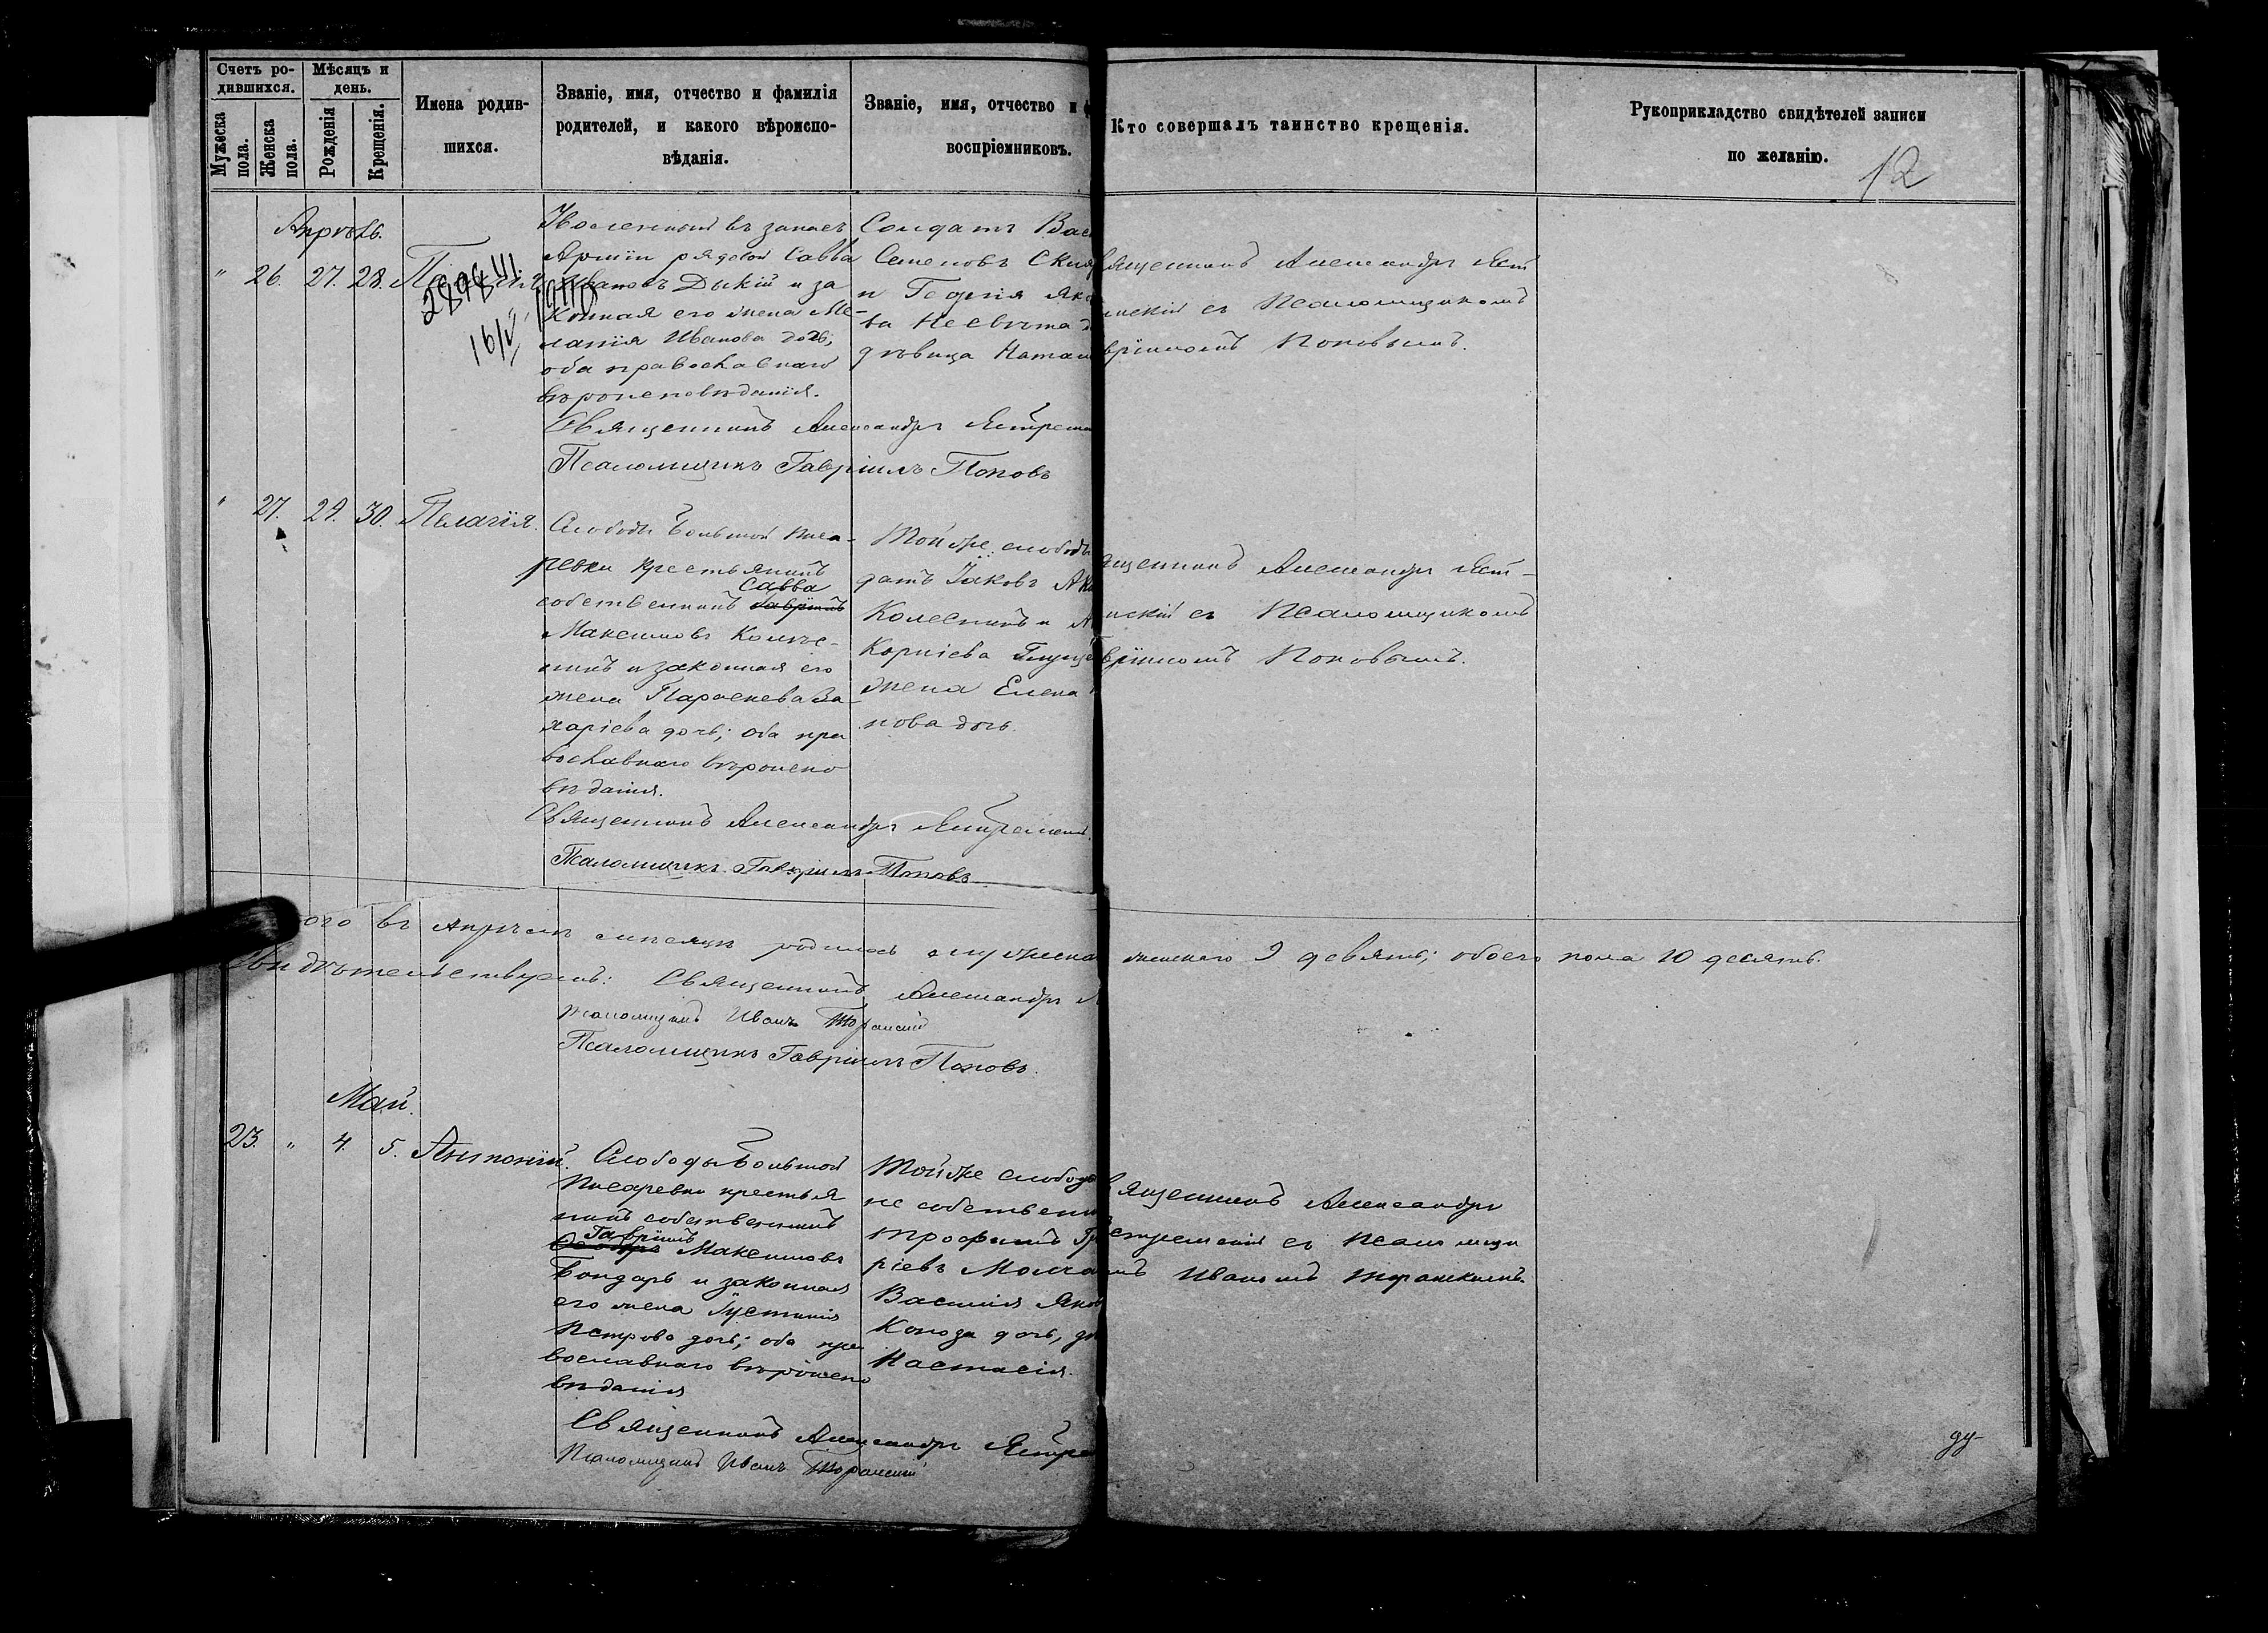 Счетъ ро-
дившихся.
Мѣсяцъ и
день.
Мужеска
пола.
Женска
пола.
Рожденія
Крещенія.
Имена родив-
шихся.
Званіе, имя, отчество и фамилія
родителей, и какого вѣроиспо-
вѣданія.
Званіе, имя, отчество и ф
воспріемниковъ.
Кто совершалъ таинство крещенія.
Рукоприкладство свидѣтелей записи
по желанію.
12
Апрѣль.
" 26. 27. 28.
2898
16/V
Уволенный въ запасъ
Арміи рядовой Савва
Ивановъ Дикій и за
конная его жена Ме-
ланія Иванова дочь;
оба православнаго
вѣроисповѣданія.
Солдатъ Вас
Семеновъ
и Георгія Яко
ва
дѣвица Натал
вященникъ Александръ Яст
мскій съ Псаломщикомъ
вріиломъ Поповымъ.
Священникъ Александръ Ястрем
Псаломщикъ Гавріилъ Поповъ
" 27. 29. 30. Пелагія.
Слободы Большой Писа-
ревки крестьянинъ
Савва
собственникъ Гавріилъ
Максимовъ Колес-
никъ и законная его
жена Параскева За-
харіева дочь; оба пра
вославнаго вѣроиспо
вѣданія.
Той же слободы
датъ Іаковъ
Колесникъ и
Корніева
жена Елена
нова дочь
ященникъ Александръ Яст-
мскій съ Псаломщикомъ
вріиломъ Поповымъ.
Священникъ Александръ Ястремск
Псаломщикъ Гавріилъ Поповъ
ого въ Апрѣлѣ мѣсяцѣ родилось мужеска
женскаго 9 девять; обоего пола 10 десять.
Свидѣтельствуемъ: Священникъ Александръ Я
Псаломщикъ Иванъ Торанскій
Псаломщикъ Гавріилъ Поповъ.
Май.
23. " 4. 5. Антоній.
Слободы Большой
Писаревки крестья
нинъ собственникъ
Гавріилъ
Максимовъ
Бондарь и законная
его жена Іустинія
Петрова дочь; оба пра
вославнаго вѣроиспо
вѣданія
Той же слободы
не собственн
Трофимъ Гр
ріевъ
Василія Яков
дочь,
Настасія.
вященникъ Александръ
стремскій съ Псаломщи
мъ Иваномъ Торанскимъ.
Священникъ Александръ Ястре
Псаломщикъ Иванъ Торанскій